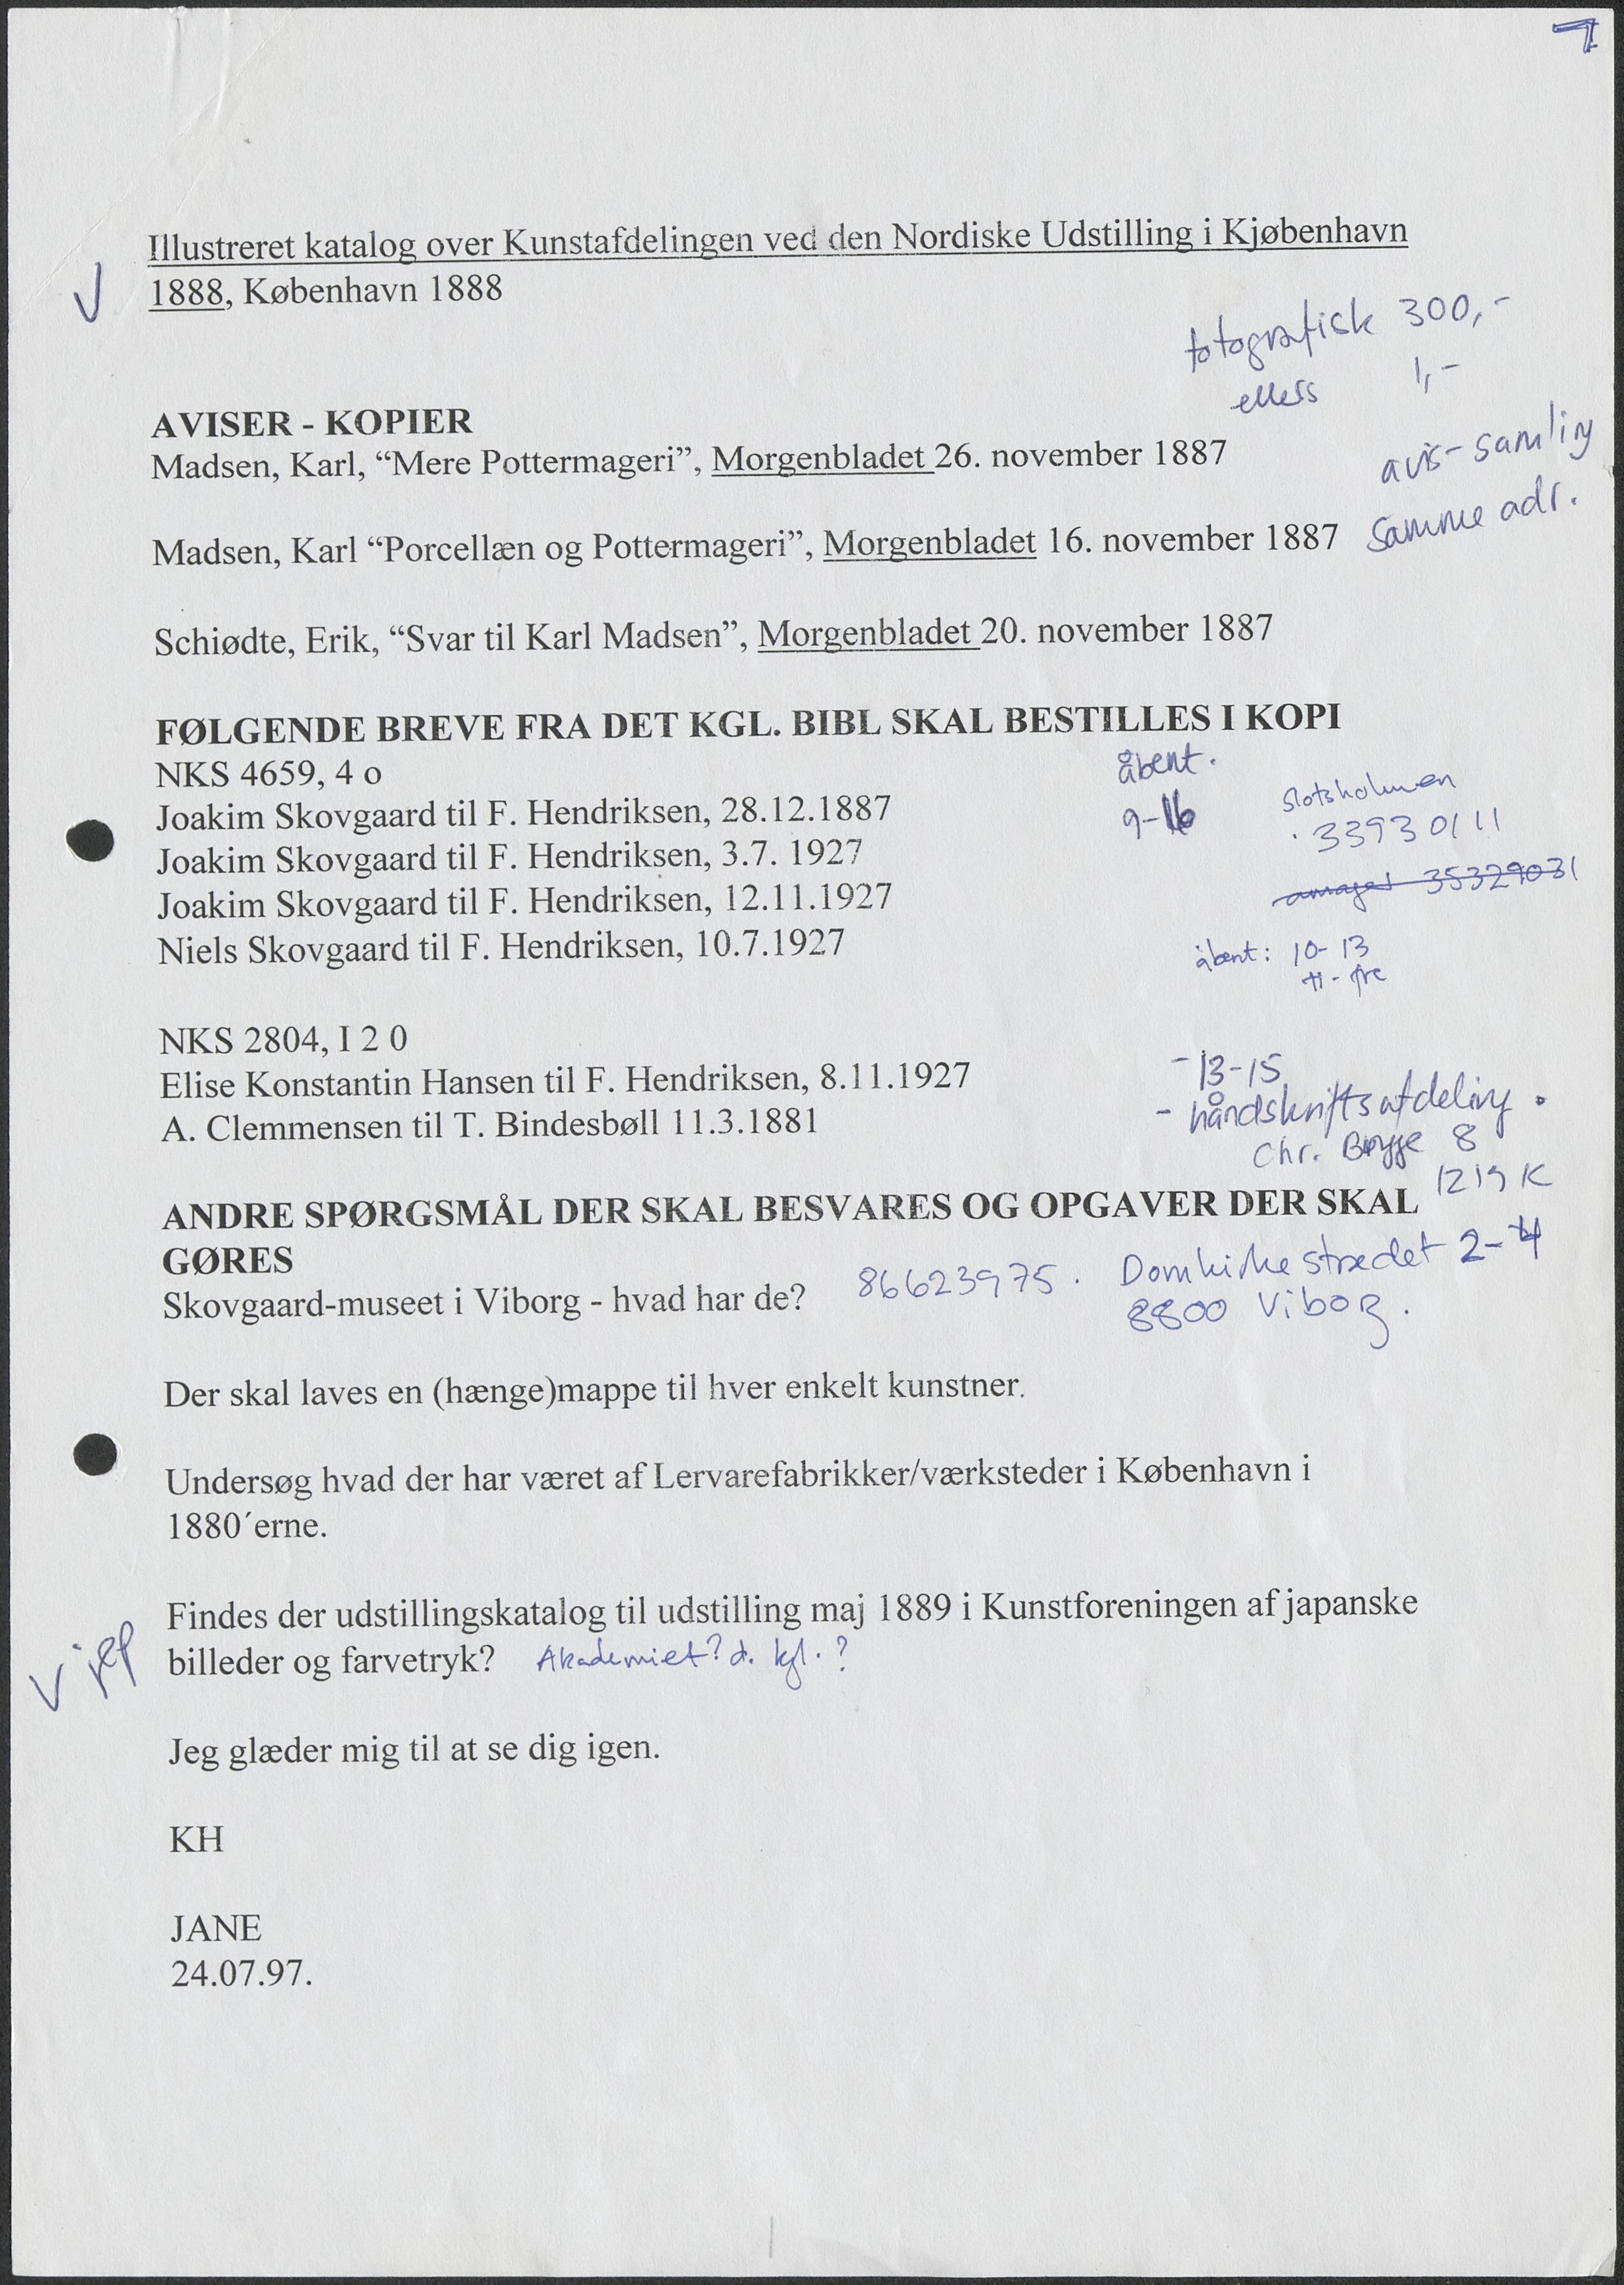 Illustreret katalog over Kunstafdelingen ved den Nordiske Udstilling i Kjøbenhavn
V 1888, København 1888
fotografisk 300,-
ellers 1,-
AVISER - KOPIER
Madsen, Karl, “Mere Pottermageri”, Morgenbladet 26. november 1887
avis-samling
samme adr.
Madsen, Karl “Porcellæn og Pottermageri”, Morgenbladet 16. november 1887
Schiødte, Erik, “Svar til Karl Madsen”, Morgenbladet 20. november 1887
FØLGENDE BREVE FRA DET KGL. BIBL SKAL BESTILLES I KOPI
NKS 4659, 4 o
åbent.
9-16
slotsholmen
33930111
amager 35329031
Joakim Skovgaard til F. Hendriksen, 28.12.1887
Joakim Skovgaard til F. Hendriksen, 3.7. 1927
Joakim Skovgaard til F. Hendriksen, 12.11.1927
Niels Skovgaard til F. Hendriksen, 10.7.1927
åbent: 10-13
ti-fre
NKS 2804, I 2 0
Elise Konstantin Hansen til F. Hendriksen, 8.11.1927
A. Clemmensen til T. Bindesbøll 11.3.1881
- 13-15
- håndskriftsafdeling.
Chr. Brygge 8
1219 K
ANDRE SPØRGSMÅL DER SKAL BESVARES OG OPGAVER DER SKAL
GØRES
Skovgaard-museet i Viborg - hvad har de? 86623975. Domkirkestrædet 2-4
8800 Viborg.
Der skal laves en (hænge)mappe til hver enkelt kunstner.
Undersøg hvad der har været af Lervarefabrikker/værksteder i København i
1880´erne.
Findes der udstillingskatalog til udstilling maj 1889 i Kunstforeningen af japanske
V jep billeder og farvetryk? Akademiet? d. kgl.?
Jeg glæder mig til at se dig igen.
KH
JANE
24.07.97.